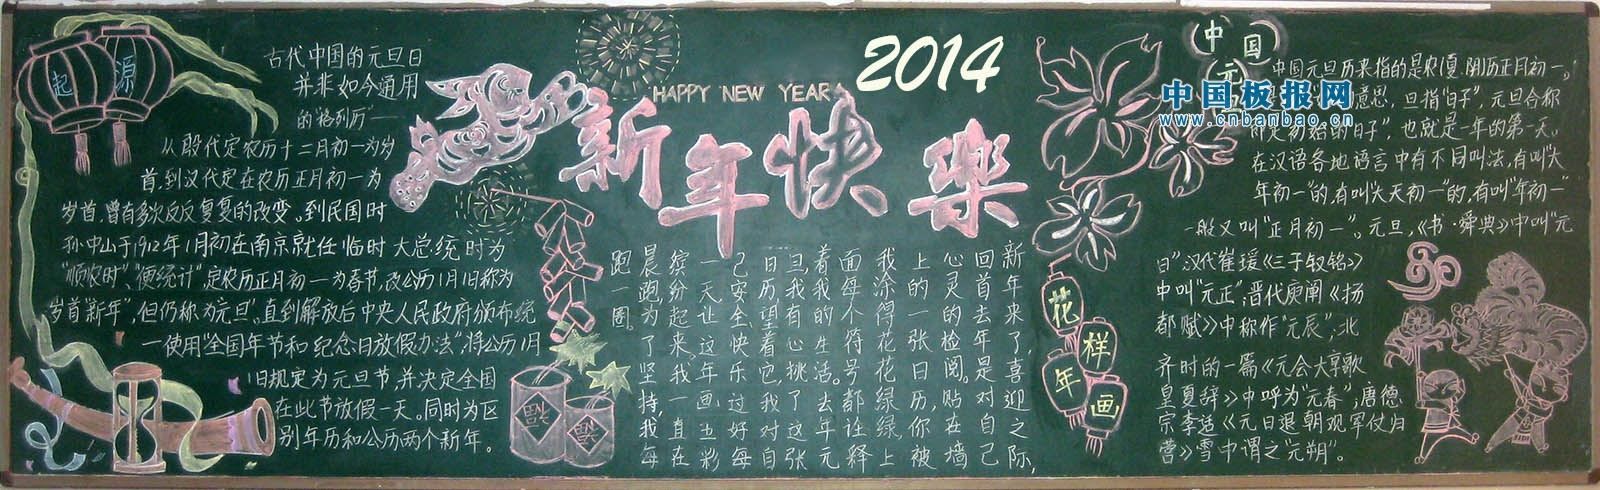 起源
古代中国的元旦日
并非如今通用
的"格列历"一
从殷代定农历十二月初一为岁
首,到汉代定在农历正月初一为
岁首,曾有多次反反复复的改变。到民国时
孙中山于1912年1月初在南京就任临时大总统时为
"顺农时"、"便统计",定农历正月初一为春节,改公历1月1日称为
岁首"新年",但仍称为元旦。直到解放后中央人民政府颁布统
一使用"全国年节和纪念日放假办法",将公历1月
1日规定为元旦节,并决定全国
在此节放假一天。同时为区
别年历和公历两个新年。
2014
HAPPY NEW YEAR
新年快樂
新年来了,喜迎之际,
回首去年是对自己
心灵的检阅。贴在墙
上的一张日历,你被
我涂得花花绿绿,上
面每个符号都诠释
着我的生活。去年元
旦,我有心挑了这张
日历,望着它,我对自
己安全、快乐过好每
一天让这年画五彩
缤纷起来。我一直在
晨跑,为了坚持,我每
跑一圈。
花样年画
中国元
中国板报网
www.cnbanbao.cn
中国元旦历来指的是农(夏、阴)历正月初一。
意思,旦指"日子",元旦合称
即是"初始的日子",也就是一年的第一天。
在汉语各地语言中有不同叫法,有叫"大
年初一"的,有叫"大天初一"的,有叫"年初一"
一般又叫"正月初一"。元旦,《书·舜典》中叫"元
日",汉代崔瑗《三子钗铭》
中叫"元正";晋代庾阐《扬
都赋》中称作"元辰";北
齐时的一篇《元会大享歌
皇夏辞》中呼为"元春";唐德
宗李适《元日退朝观军仗归
营》雪中谓之"元朔"。
福
福